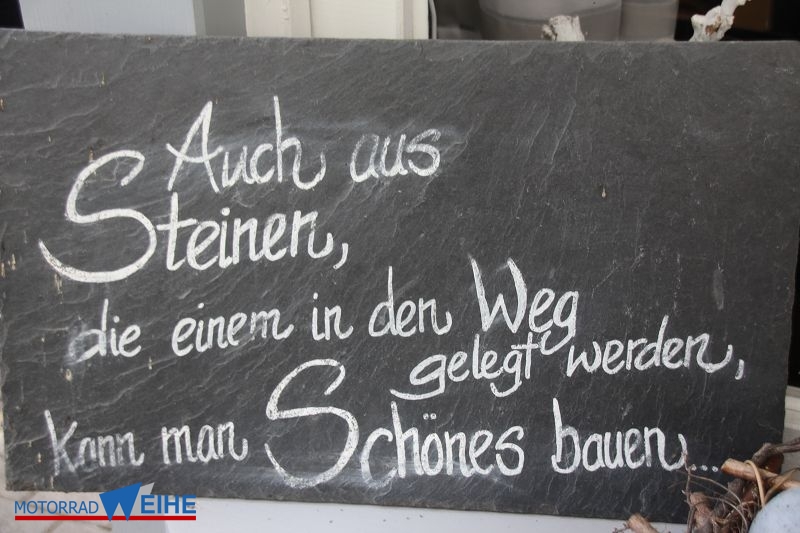 Auch aus
Steinen,
die einem in den Weg
gelegt werden,
kann man Schönes bauen...
MOTORRAD WEIHE